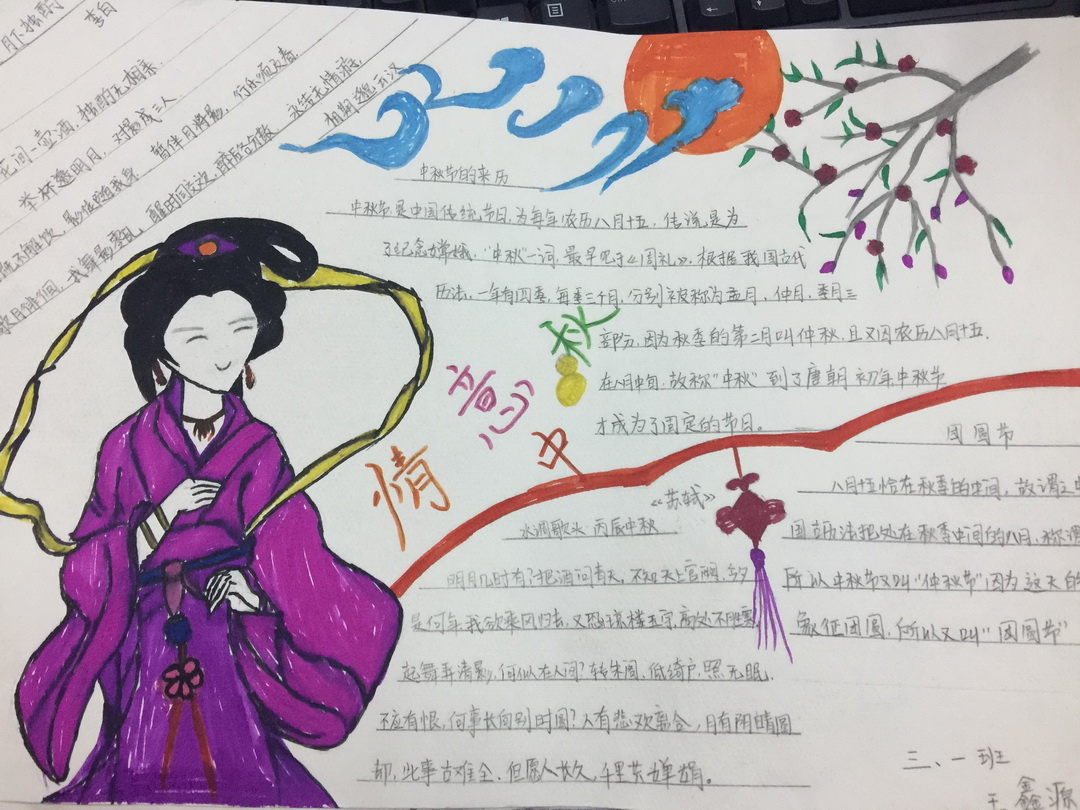 月下独酌
李白
花间一壶酒，独酌无相亲
举杯邀明月，对影成三人
既不解饮，影徒随我身
暂伴月将影，行乐须及春
我舞影零乱，醒时同交欢，醉后各分散
永结无情游
相期邈云汉
中秋节的来历
中秋节是中国传统节日，为每年农历八月十五，传说是为
了纪念嫦娥。“中秋”一词，最早见于《周礼》，根据我国古代
历法，一年有四季，每季三个月，分别被称为孟月，仲月，季月三
部分，因为秋季的第二月叫仲秋，且又因农历八月十五，
在八月中旬，故称“中秋”到了唐朝初年中秋节
才成为了固定的节日。
情
意
中
秋
团圆节
八月十五恰在秋季的中间，故谓之中
国历法把处在秋季中间的八月，称谓
所以中秋节又叫“仲秋节”因为这天的
象征团圆，所以又叫“团圆节”
《苏轼》
水调歌头 丙辰中秋
明月几时有？把酒问青天，不知天上宫阙，今夕
是何年我欲乘风归去，又恐琼楼玉宇，高处不胜寒，
起舞弄清影，何似在人间？转朱阁，低绮户，照无眠，
不应有恨，何事长向别时圆？人有悲欢离合，月有阴晴圆
却，此事古难全，但愿人长久，千里共婵娟。
三、一班
王鑫源